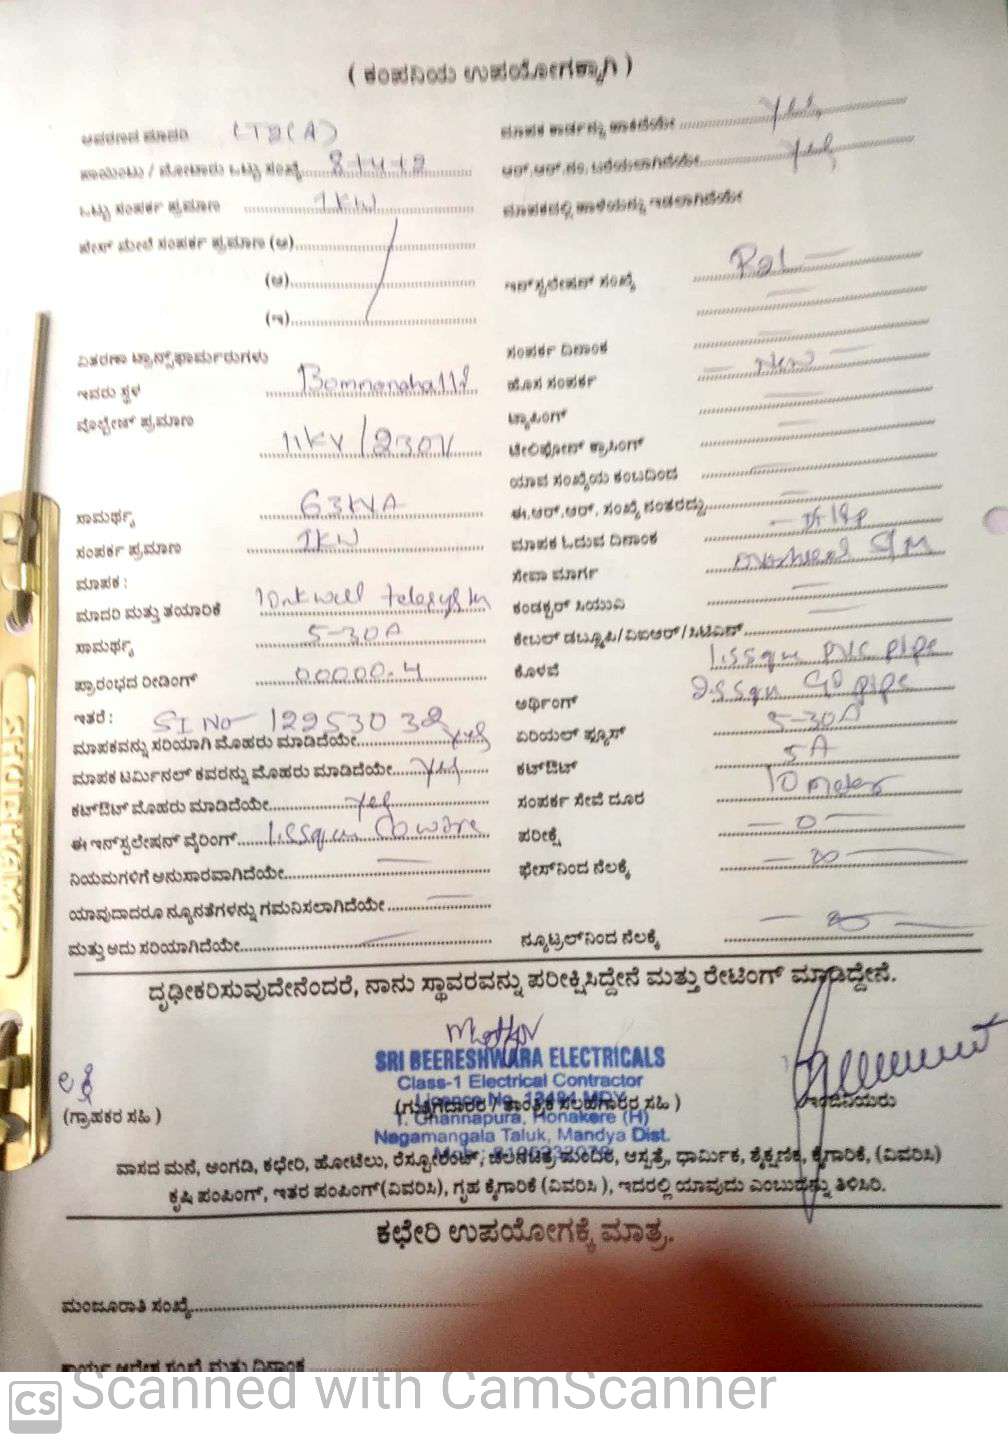 ( ಕಂಪನಿಯ ಉಪಯೋಗಕ್ಕಾಗಿ )
ಆವರಣದ ಮಾದರಿ LT2(A)
ಪಾಯಿಂಟು / ಮೋಟಾರು ಒಟ್ಟು ಸಂಖ್ಯೆ
ಒಟ್ಟು ಸಂಪರ್ಕ ಪ್ರಮಾಣ 1KW
ಫೇಸ್ ಮೇಲೆ ಸಂಪರ್ಕ ಪ್ರಮಾಣ (ಅ)
(ಆ)
(ಇ)
ವಿತರಣಾ ಟ್ರಾನ್ಸ್‌ಫಾರ್ಮರುಗಳು
ಇವರು ಸ್ಥಳ Bommanahalli
ವೊಲ್ಟೇಜ್ ಪ್ರಮಾಣ
11KV/230V
ಸಾಮರ್ಥ್ಯ 63KVA
ಸಂಪರ್ಕ ಪ್ರಮಾಣ 1KW
ಮಾಪಕ :
ಮಾದರಿ ಮತ್ತು ತಯಾರಿಕೆ
ಸಾಮರ್ಥ್ಯ 5-30A
ಪ್ರಾರಂಭದ ರೀಡಿಂಗ್ 00000.4
ಇತರೆ : SI No
ಮಾಪಕವನ್ನು ಸರಿಯಾಗಿ ಮೊಹರು ಮಾಡಿದೆಯೇ yes
ಮಾಪಕ ಟರ್ಮಿನಲ್ ಕವರನ್ನು ಮೊಹರು ಮಾಡಿದೆಯೇ yes
ಕಟ್‌ಔಟ್ ಮೊಹರು ಮಾಡಿದೆಯೇ yes
ಈ ಇನ್‌ಸ್ಟಲೇಷನ್ ವೈರಿಂಗ್
ನಿಯಮಗಳಿಗೆ ಅನುಸಾರವಾಗಿದೆಯೇ
ಯಾವುದಾದರೂ ನ್ಯೂನತೆಗಳನ್ನು ಗಮನಿಸಲಾಗಿದೆಯೇ
ಮತ್ತು ಅದು ಸರಿಯಾಗಿದೆಯೇ
ಮಾಪಕ ಕಾರ್ಡನ್ನು ಹಾಕಿದೆಯೇ yes
ಆರ್.ಆರ್.ನಂ. ಬರೆಯಲಾಗಿದೆಯೇ yes
ಮಾಪಕದಲ್ಲಿ ಹಾಳೆಯನ್ನು ಇಡಲಾಗಿದೆಯೇ
ಇನ್‌ಸ್ಟಲೇಷನ್ ಸಂಖ್ಯೆ
ಸಂಪರ್ಕ ದಿನಾಂಕ
ಹೊಸ ಸಂಪರ್ಕ New
ಟ್ಯಾಪಿಂಗ್
ಟೆಲಿಫೋನ್ ಕ್ರಾಸಿಂಗ್
ಯಾವ ಸಂಖ್ಯೆಯ ಕಂಬದಿಂದ
ಈ.ಆರ್.ಆರ್. ಸಂಖ್ಯೆ ನಂತರದ್ದು
ಮಾಪಕ ಓದುವ ದಿನಾಂಕ
ಸೇವಾ ಮಾರ್ಗ overhead
ಕಂಡಕ್ಟರ್ ಸಿಯುವಿ
ಕೇಬಲ್ ಡಬ್ಲೂಪಿ/ವಿಐಆರ್/ಸಿಟಿಎಸ್
ಕೊಳವೆ 1.5sqm PVC pipe
ಅರ್ಥಿಂಗ್ 2.5sqm GI pipe
ಏರಿಯಲ್ ಫ್ಯೂಸ್ 5-30A
ಕಟ್‌ಔಟ್ 5A
ಸಂಪರ್ಕ ಸೇವೆ ದೂರ 10 meter
ಪರೀಕ್ಷೆ
ಫೇಸ್‌ನಿಂದ ನೆಲಕ್ಕೆ
ನ್ಯೂಟ್ರಲ್‌ನಿಂದ ನೆಲಕ್ಕೆ
ದೃಢೀಕರಿಸುವುದೇನೆಂದರೆ, ನಾನು ಸ್ಥಾವರವನ್ನು ಪರೀಕ್ಷಿಸಿದ್ದೇನೆ ಮತ್ತು ರೇಟಿಂಗ್ ಮಾಡಿದ್ದೇನೆ.
SRI BEERESHWARA ELECTRICALS
Class-1 Electrical Contractor
Licence No. 13484 MDY
(ಗ್ರಾಹಕರ ಸಹಿ ) (ಗುತ್ತಿಗೆದಾರರ / ತಾಂತ್ರಿಕ ಸಲಹೆಗಾರರ ಸಹಿ ) ಇಂಜಿನಿಯರು
T. Channapura, Honakere (H)
Nagamangala Taluk, Mandya Dist.
ವಾಸದ ಮನೆ, ಅಂಗಡಿ, ಕಛೇರಿ, ಹೋಟೆಲು, ರೆಸ್ಟೋರೆಂಟ್, ಚಲನಚಿತ್ರ ಮಂದಿರ, ಆಸ್ಪತ್ರೆ, ಧಾರ್ಮಿಕ, ಶೈಕ್ಷಣಿಕ, ಕೈಗಾರಿಕೆ, (ವಿವರಿಸಿ)
ಕೃಷಿ ಪಂಪಿಂಗ್, ಇತರ ಪಂಪಿಂಗ್(ವಿವರಿಸಿ), ಗೃಹ ಕೈಗಾರಿಕೆ (ವಿವರಿಸಿ ), ಇದರಲ್ಲಿ ಯಾವುದು ಎಂಬುದನ್ನು ತಿಳಿಸಿರಿ.
ಕಛೇರಿ ಉಪಯೋಗಕ್ಕೆ ಮಾತ್ರ.
ಮಂಜೂರಾತಿ ಸಂಖ್ಯೆ
ಕಾರ್ಯ ಆದೇಶ ಸಂಖ್ಯೆ ಮತ್ತು ದಿನಾಂಕ
CS Scanned with CamScanner